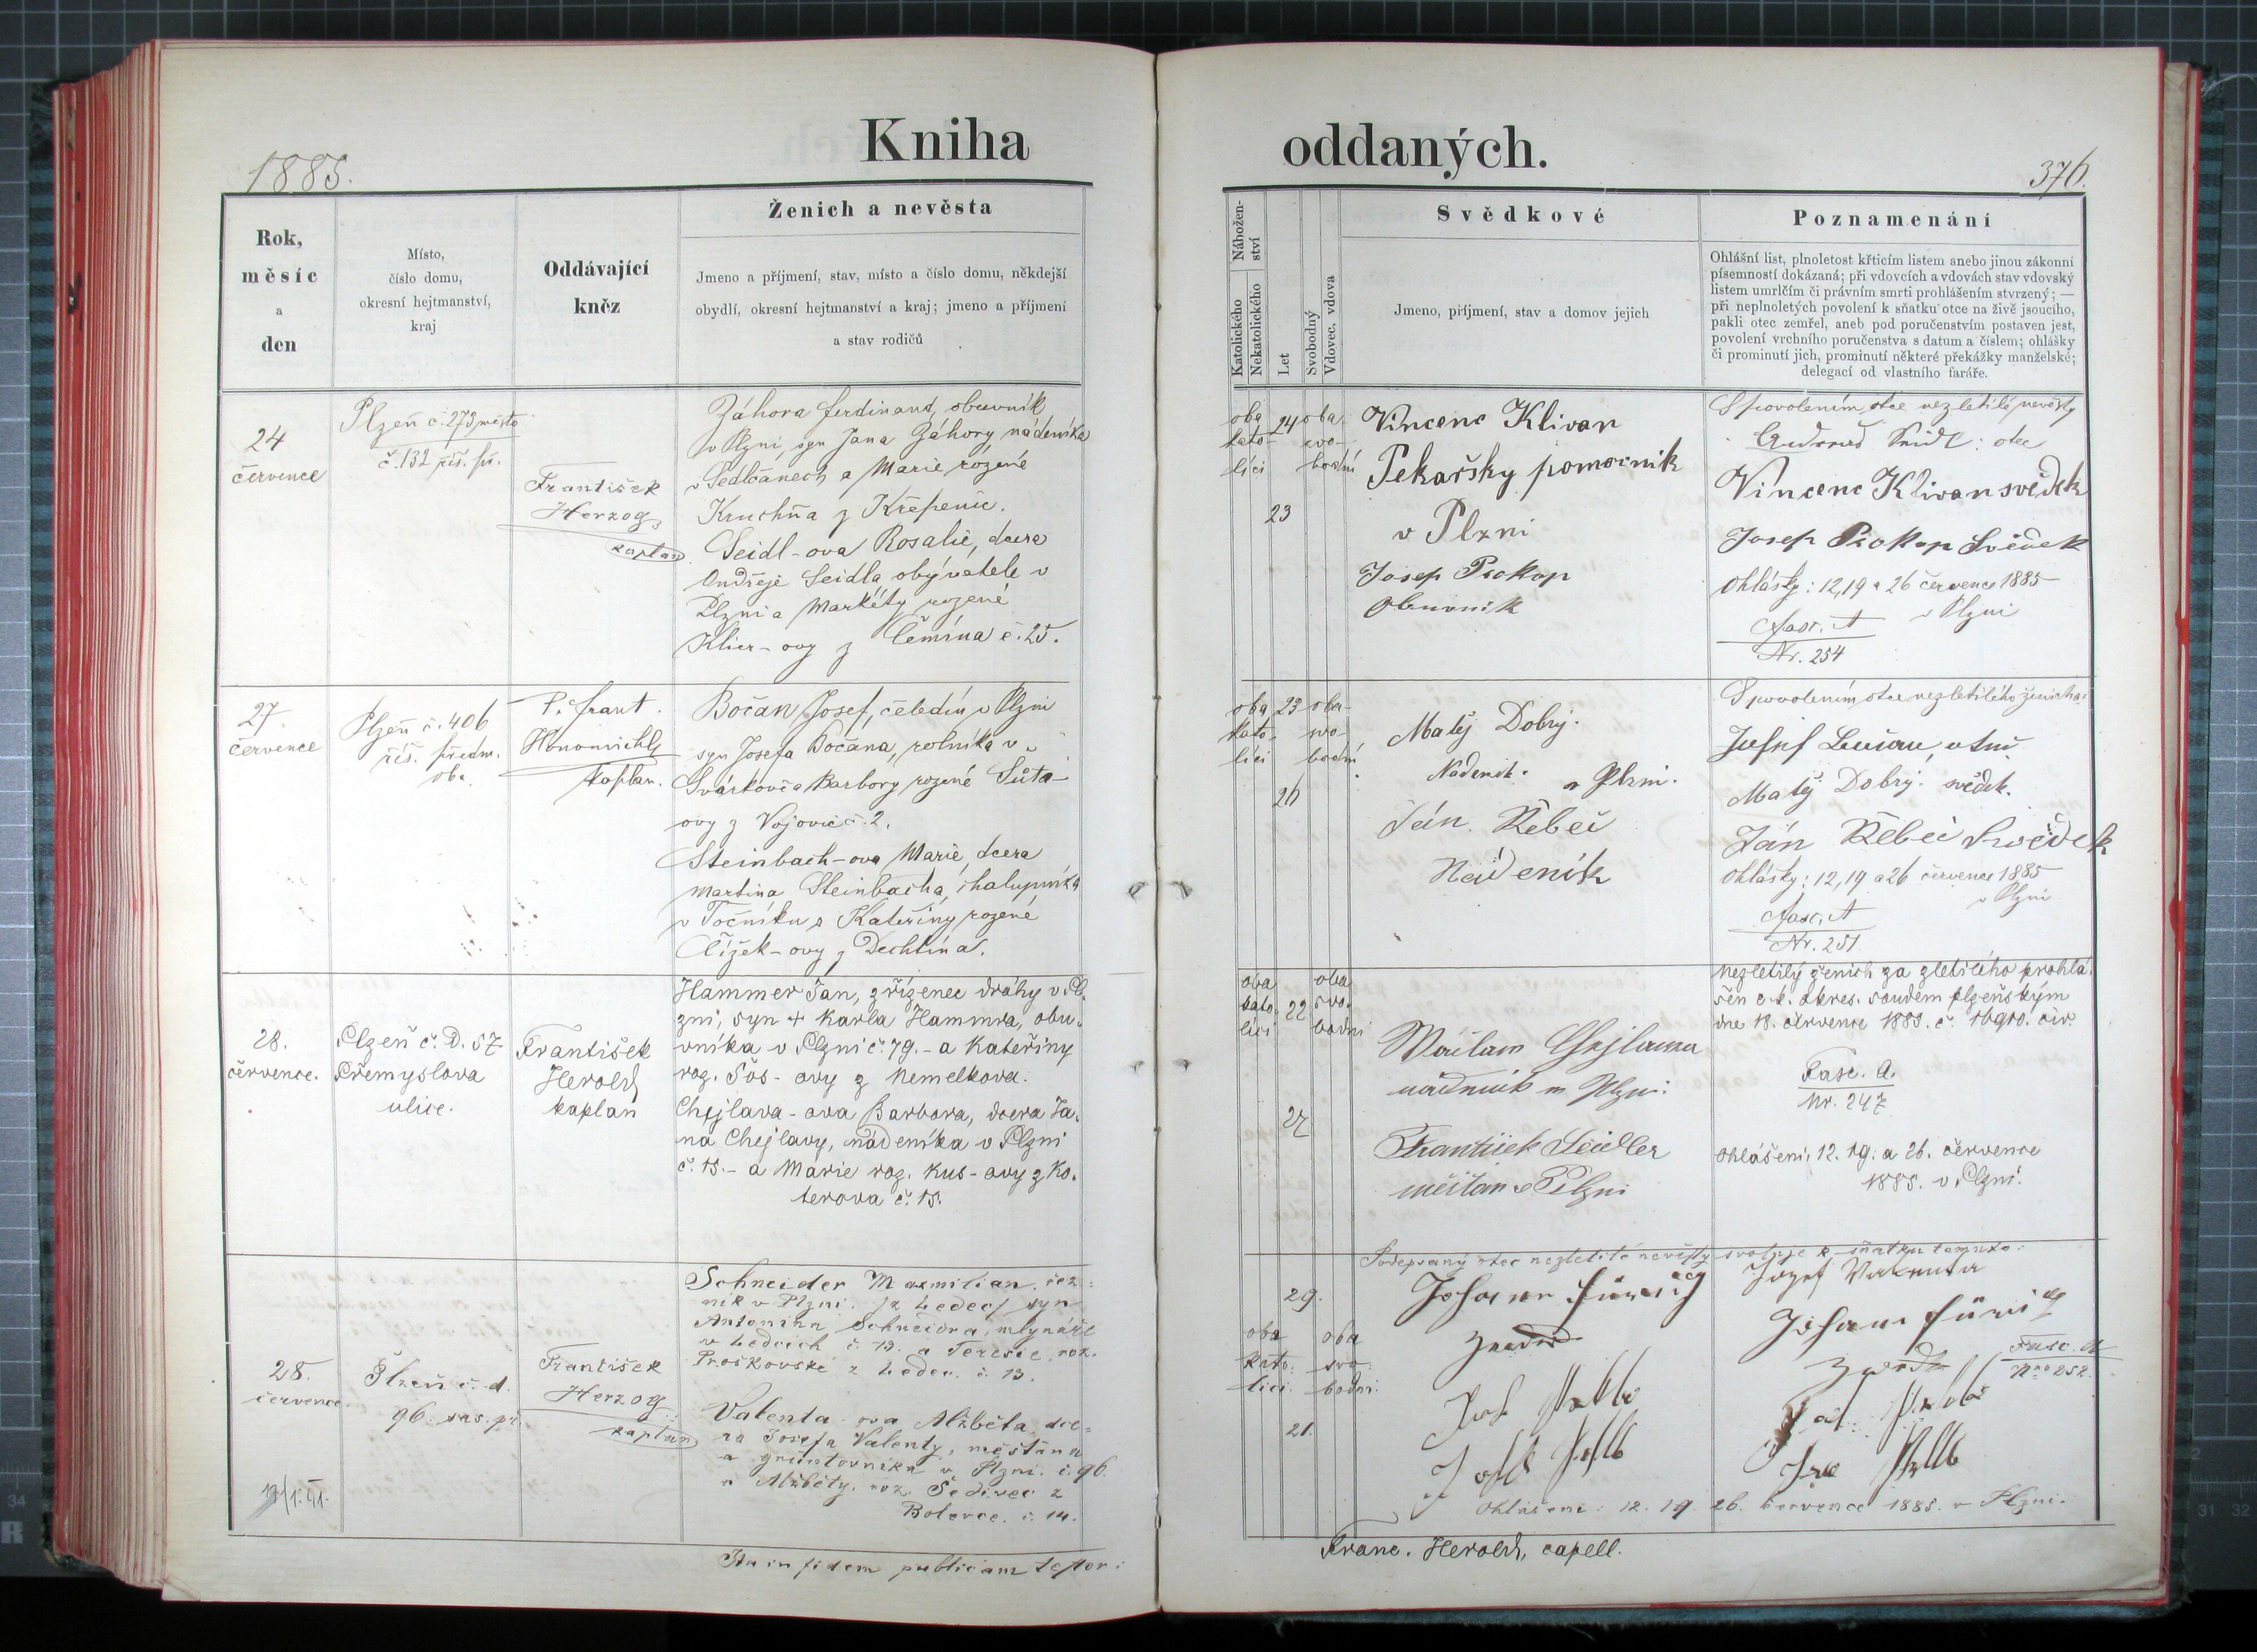 Kniha oddaných.
1885.
376.
Rok,
měsíc
a
den
Místo,
číslo domu,
okresní hejtmanství,
kraj
Oddávající
kněz
Ženich a nevěsta
Jmeno a příjmení, stav, místo a číslo domu, někdejší
obydlí, okresní hejtmanství a kraj; jmeno a příjmení
a stav rodičů
Nábožen-
ství
Katolického
Nekatolického
Let
Svobodný
Vdovec, vdova
Svědkové
Jmeno, příjmení, stav a domov jejich
Poznamenání
Ohlášní list, plnoletost křticím listem anebo jinou zákonní
písemností dokázaná; při vdovcích a vdovách stav vdovský
listem umrlčím či právním smrti prohlášením stvrzený; —
při neplnoletých povolení k sňatku otce na živě jsoucího,
pakli otec zemřel, aneb pod poručenstvím postaven jest,
povolení vrchního poručenstva s datum a číslem; ohlášky
či prominutí jich, prominutí některé překážky manželské;
delegací od vlastního faráře.
24
července
Plzeň č. 273 město
č. 132 říš. př.
František
Herzog
kaplan
Záhora Ferdinand, obuvník
v Plzni, syn Jana Záhory nádeníka
v Sedlčanech a Marie rozené
Kruchňa z Křepenic.
Seidl-ova Rosalie, dcera
Ondřeje Seidla obývatele v
Plzni a Markéty rozené
Klier-ovy z Čemína č. 25.
oba
kato-
líci
24
23
oba
svo-
bodní
Vincenc Klivan
Pekařsky pomocnik
v Plzni
Josef Prokop
Obuvnik
S povolením otce nezletilé nevěsty
Seidl: otec
Vincenc Klivan svědek
Josef Prokop Svědek
Ohlášky: 12, 19 a 26 července 1885
v Plzni
Fasc. A
Nr. 254
27.
července
Plzeň č. 406
říš. předm.
P. Frant.
kaplan.
Bočan Josef, čeledín v Plzni
syn Josefa Bočana, rolníka v
Svárkově a Barbory rozené Šůta-
ovy z Vojovic č. 2.
Steinbach-ova Marie, dcera
Martina Steinbacha, chalupníka
v Točníku a Kateřiny rozené
Čížek-ovy z Dechtína.
oba
kato-
líci
23
26
oba-
svo-
bodní
Matěj Dobrý.
Nadenik. v Plzni.
Ján Řebec
Nádeník
S povolením otce nezletilého ženicha:
Matěj Dobrý. svědek.
Ján Řebec Svědek
Ohlášky: 12, 19 a 26 července 1885
v Plzni
Fasc. A
Nr. 251
28.
července.
Plzeň č. D. 57
Přemyslova
ulice.
František
Herold
kaplan
Hammer Jan, zřízenec dráhy v Pl-
zni, syn + Karla Hammra, obu-
vníka v Plzni č. 79. - a Kateřiny
roz. Šos-ovy z Nemelkova.
Chejlava-ova Barbora, dcera Ja-
na Chejlavy, nádeníka v Plzni
č. 15. - a Marie roz. Kus-ovy z Ko-
terova č. 15.
oba
kato-
líci
22
27
oba
svo-
bodní
František Seidler
měšťan v Plzni
Nezletilý ženich za zletilého prohlá-
šen c. k. okres. soudem plzeňským
dne 18. července 1885. č. 16910. civ.
Fasc. A.
Nr. 247
Ohlášení: 12. 19. a 26. července
1885. v Plzni.
28.
července
Plzeň č. d.
96.
František
Herzog
kaplan
Schneider Maxmilian, řez-
ník v Plzni, syn
Antonína Schneidra, mlynáře
v Ledcích č. 13. a Teresie roz.
Proškovské z Ledec. č. 13.
Valenta-ova Alžběta, dce-
ra Josefa Valenty, měšťana
a gruntovníka v Plzni. č. 96.
a Alžběty. roz. Šedivec z
Bolevce. č. 14.
29.
oba
kato-
líci.
21.
oba
svo-
bodní.
Podepsaný otec nezletilé nevěsty svoluje k sňatku tomuto:
Josef Valenta
Fasc. A
Nro 252.
Ohlášení: 12. 19. 26. července 1885. v Plzni.
Ita in fidem publicam testor: Franc. Herold, capell.